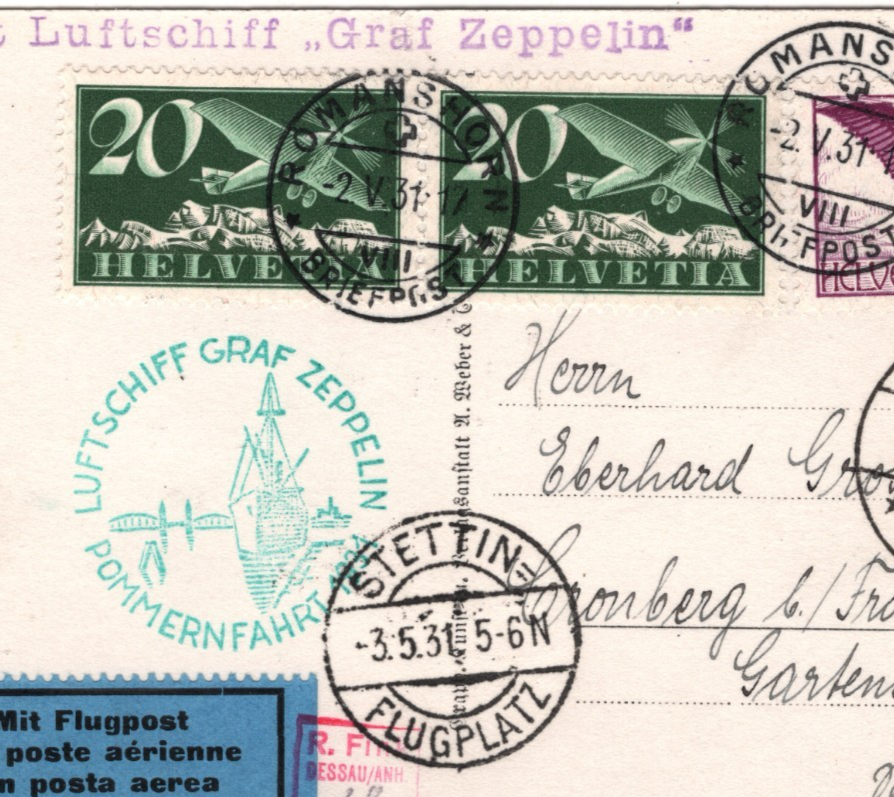 t Luftschiff „Graf Zeppelin“
20
HELVETIA
20
HELVETIA
ROMANSHORN
-2.V.31-17
VIII
BRIEFPOST
ROMANS
-2.V.31-1
VIII
BRIEFPOST
HELV
LUFTSCHIFF GRAF ZEPPELIN
POMMERNFAHRT 1931
A. Weber &
Herrn
Eberhard
Cronberg b./Fr
Garten
STETTIN
-3.5.31 5-6N
FLUGPLATZ
Mit Flugpost
poste aérienne
n posta aerea
R. FI
DESSAU/ANH.